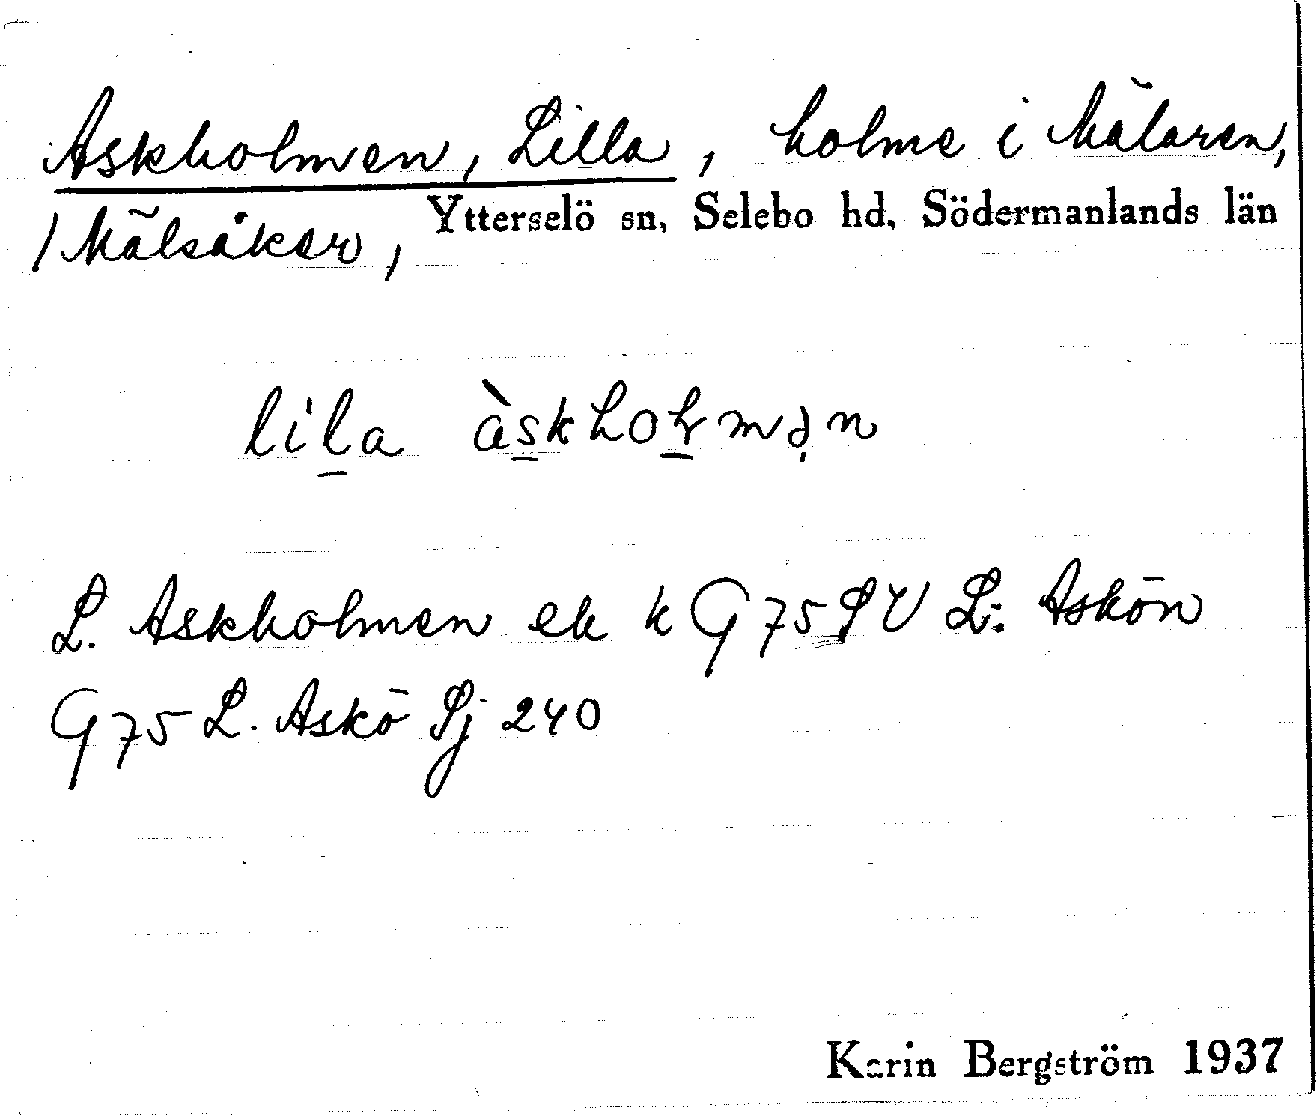 Askholmen, Lilla, holme i Mälaren,
/Mälsåker, Ytterselö sn, Selebo hd, Södermanlands län
lila àskholmən
L. Askholmen ek k G 75 SV L: Askön
G 75 L. Askö Sj 240
Karin Bergström 1937